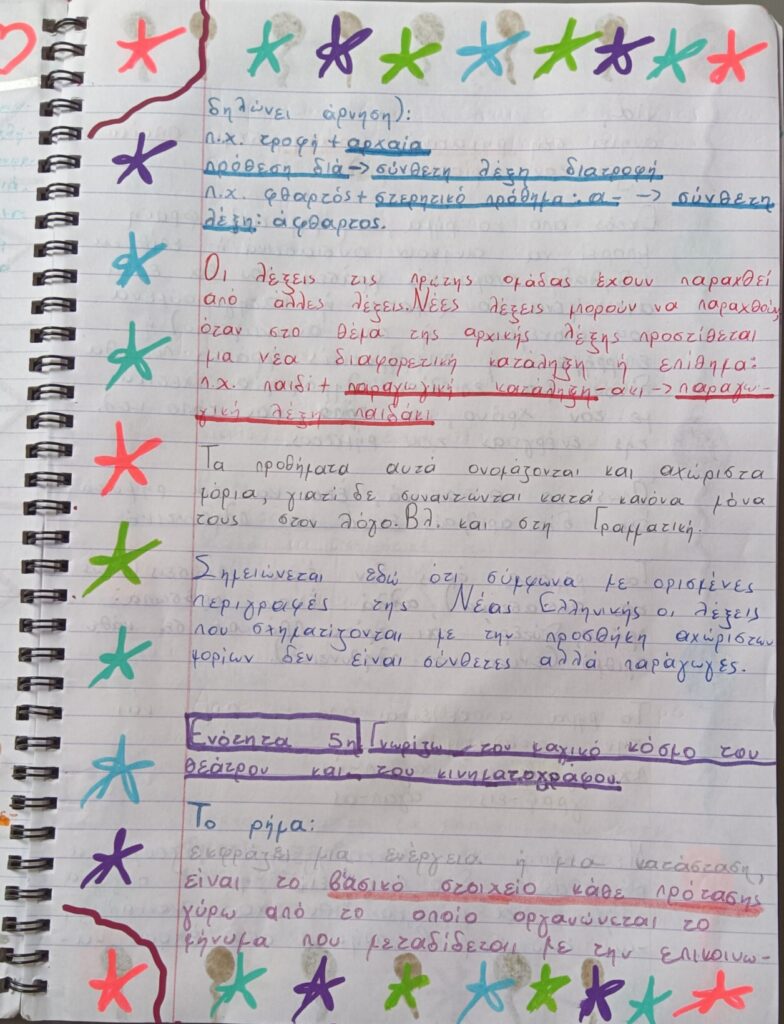 δηλώνει άρνηση):
π.χ. τροφή + αρχαία
πρόθεση διά -> σύνθετη λέξη διατροφή
π.χ. φθαρτός + στερητικό πρόθημα: α- -> σύνθετη
λέξη: άφθαρτος.
Οι λέξεις τις πρώτης ομάδας έχουν παραχθεί
από άλλες λέξεις. Νέες λέξεις μπορούν να παραχθούν
όταν στο θέμα της αρχικής λέξης προστίθεται
μια νέα διαφορετική κατάληξη ή επίθημα:
π.χ. παιδί + παραγωγική κατάληξη -άκι -> παραγω-
γική λέξη παιδάκι
Τα προθήματα αυτά ονομάζονται και αχώριστα
μόρια, γιατί δε συναντώνται κατά κανόνα μόνα
τους στον λόγο. Βλ. και στη Γραμματική.
Σημειώνεται εδώ ότι σύμφωνα με ορισμένες
περιγραφές της Νέας Ελληνικής οι λέξεις
που σχηματίζονται με την προσθήκη αχώριστων
μορίων δεν είναι σύνθετες αλλά παράγωγες.
Ενότητα 5η Γνωρίζω τον μαγικό κόσμο του
θεάτρου και του κινηματογράφου.
Το ρήμα:
εκφράζει μια ενέργεια ή μια κατάσταση,
είναι το βασικό στοιχείο κάθε πρότασης
γύρω από το οποίο οργανώνεται το
μήνυμα που μεταδίδεται με την επικοινω-